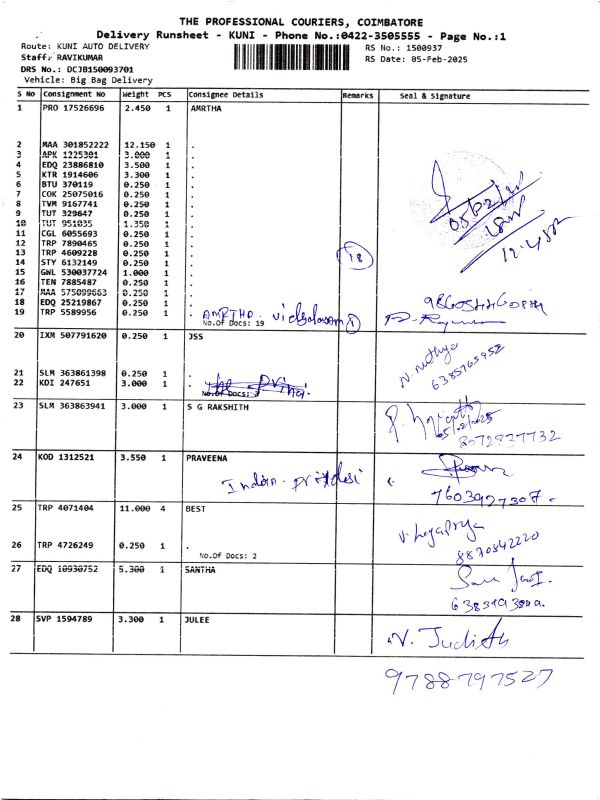 THE PROFESSIONAL COURIERS, COIMBATORE
Delivery Runsheet - KUNI - Phone No.:0422-3505555 - Page No.:1
Route: KUNI AUTO DELIVERY
RS No.: 1500937
Staff: RAVIKUMAR
RS Date: 05-Feb-2025
DRS No.: DCJB150093701
Vehicle: Big Bag Delivery
S No Consignment No Weight PCS Consignee Details Remarks Seal & Signature
1 PRO 17526696 2.450 1 AMRTHA
2 MAA 301852222 12.150 1 .
3 APK 1225301 3.000 1 .
4 EDQ 23886810 3.500 1 .
5 KTR 1914606 3.300 1 .
6 BTU 370119 0.250 1 .
7 COK 25075016 0.250 1 .
8 TVM 9167741 0.250 1 .
9 TUT 329647 0.250 1 .
10 TUT 951035 1.350 1 .
11 CGL 6055693 0.250 1 .
12 TRP 7890465 0.250 1 .
13 TRP 4609228 0.250 1 .
14 STY 6132149 0.250 1 .
15 GWL 530037724 1.000 1 .
16 TEN 7885487 0.250 1 .
17 MAA 575099663 0.250 1 .
18 EDQ 25219867 0.250 1 .
19 TRP 5589956 0.250 1 .
18
12.45
AMRTHA
No.Of Docs: 19
20 IXM 507791620 0.250 1 JSS
21 SLM 363861398 0.250 1 .
22 KDI 247651 3.000 1 .
No.Of Docs: 3
N. nithya
6385765952
23 SLM 363863941 3.000 1 S G RAKSHITH
05/02/2025
8072937732
24 KOD 1312521 3.550 1 PRAVEENA
Indian
7603927307
25 TRP 4071404 11.000 4 BEST
26 TRP 4726249 0.250 1 .
No.Of Docs: 2
8870842220
27 EDQ 10930752 5.300 1 SANTHA
28 SVP 1594789 3.300 1 JULEE
N. Judith
9788797527